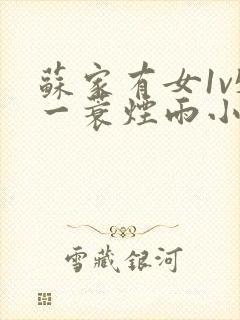 蘇家有女1v
一蓑煙雨小
雪藏銀河